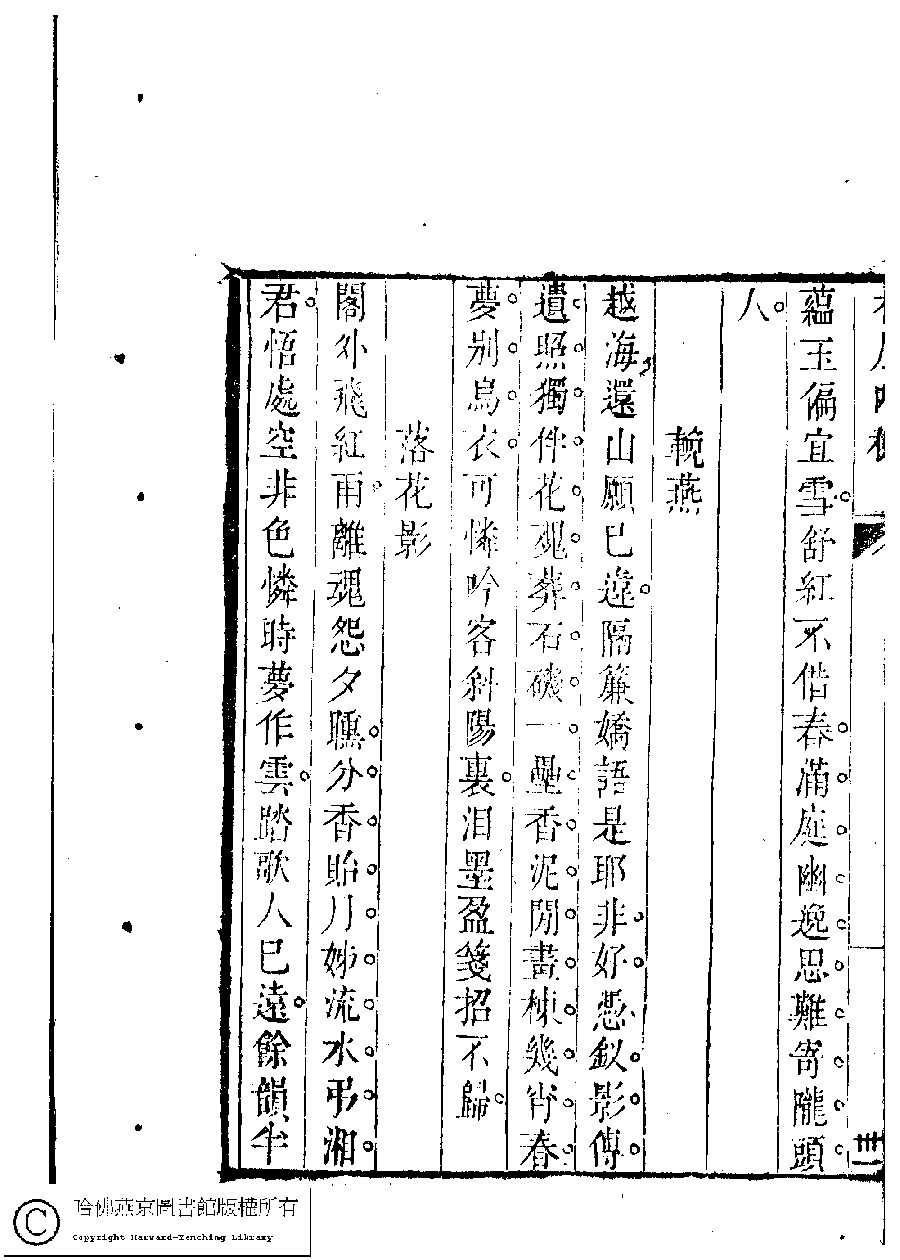 蘊玉偏宜雪舒紅不偕春滿庭幽逸思難寄隴頭
人
輓燕
越海還山願已違隔簾嬌語是耶非好憑釵影傳
遺照獨伴花魂葬石磯一壘香泥閒畫棟幾宵春
夢別烏衣可憐吟客斜陽裏泪墨盈箋招不歸
落花影
閣外飛紅雨離魂怨夕曛分香貽月姊流水弔湘
君悟處空非色憐時夢作雲踏歌人已遠餘韻半
卅一
哈佛燕京圖書館版權所有
Copyright Harvard-Yenching Library